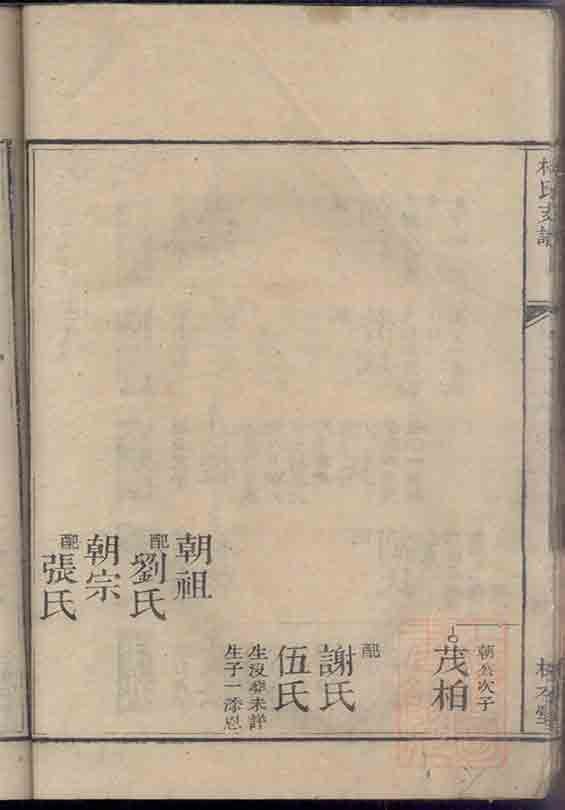 氏支譜
次子
茂柏
配
謝氏
伍氏
生沒葬未詳
生子一添恩
朝祖
配劉氏
朝宗
配張氏